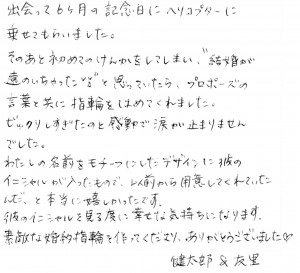 出会って6ヶ月の記念日にヘリコプターに
乗せてもらいました。
そのあと初めてのけんかをしてしまい、"結婚が
遠のいちゃったな"と思っていたら、プロポーズの
言葉と共に指輪をはめてくれました。
ビックリしすぎたのと感動で涙が止まりません
でした。
わたしの名前をモチーフにしたデザインに彼の
イニシャルが入ったもので、以前から用意してくれていた
んだ、と本当に嬉しかったです。
彼のイニシャルを見る度に幸せな気持ちになります。
素敵な婚約指輪を作ってくださり、ありがとうございました♡
健太郎 & 友里